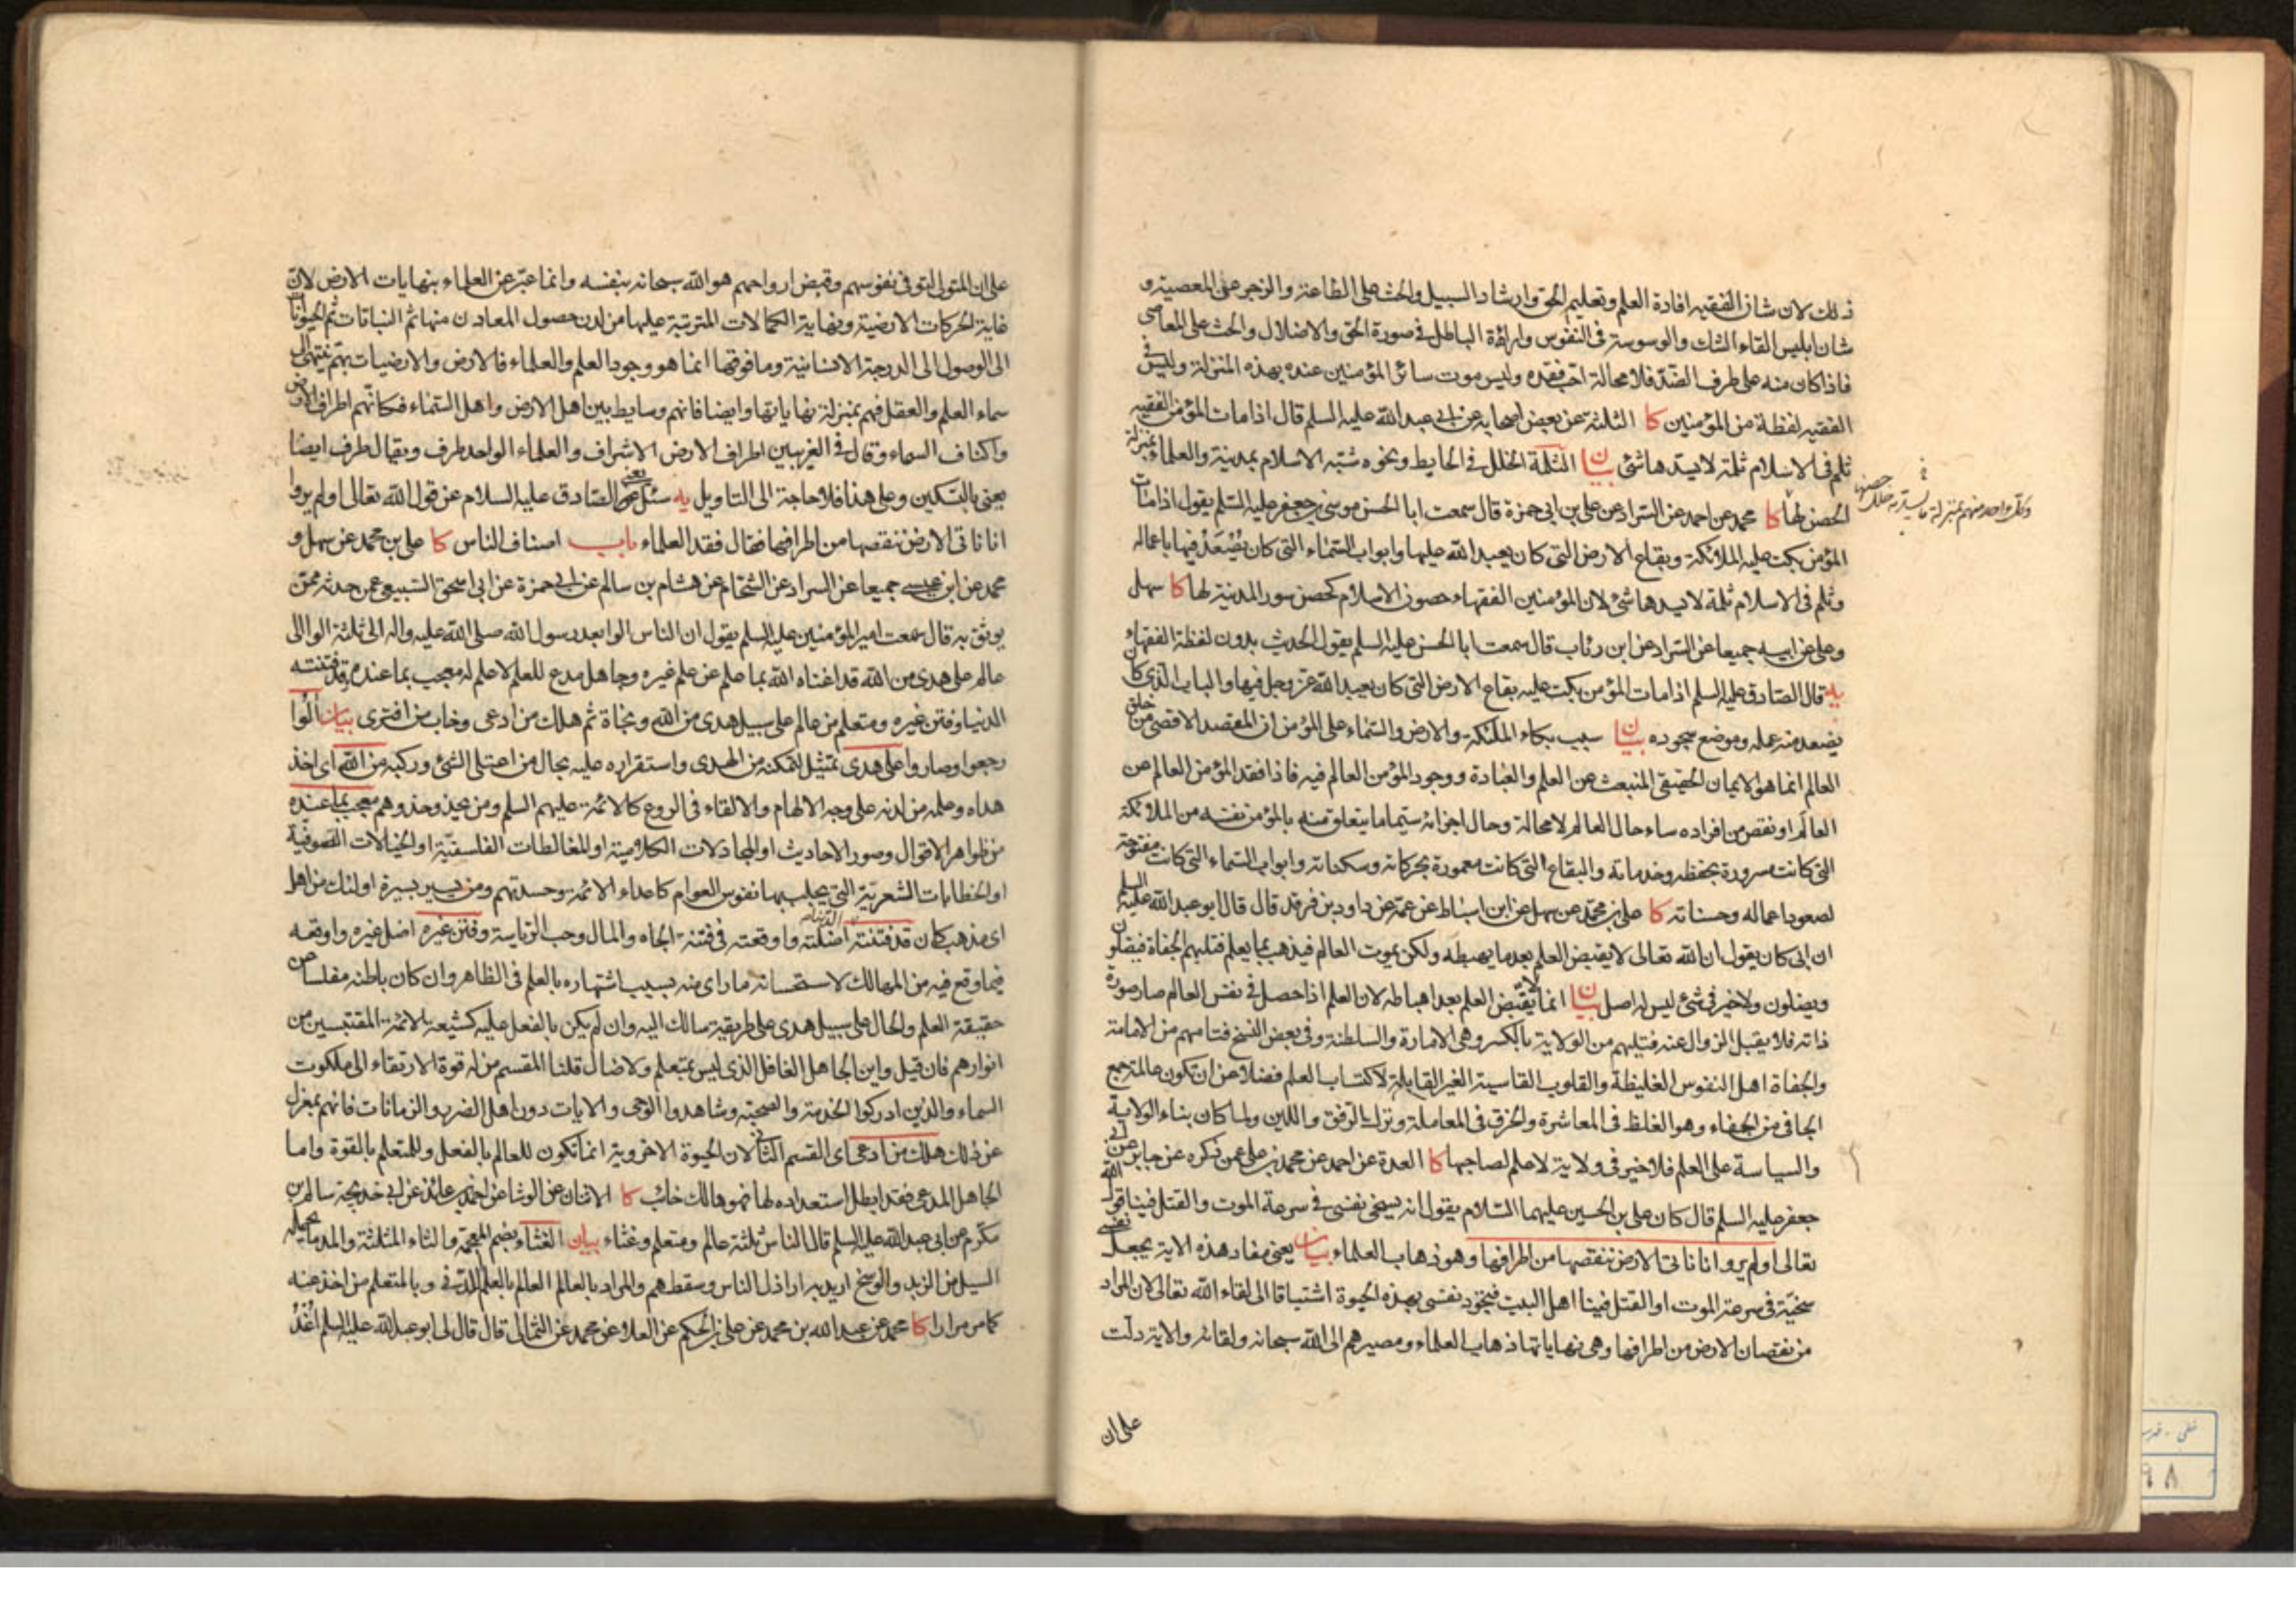 ذلك لان شان الفقيه افادة العلم وتعليم الحق وارشاد السبيل والحث على الطاعة والزجر عن المعصية و
شان ابليس القاء الشك والوسوسة فى النفوس واراءة الباطل فى صورة الحق والاضلال والحث على المعاصى
فاذا كان منه على طرف الضد فلا محالة احب فقده وليس موت سائر المؤمنين عنده بهذه المنزلة وليس فى
الفقيه لفظة من المؤمنين كا الثلثة عن بعض اصحابه عن ابى عبد الله عليه السلم قال اذا مات المؤمن الفقيه
ثلم فى الاسلام ثلمة لا يسدها شئ بيان الثلمة الخلل فى الحايط ونحوه شبه الاسلام بمدينة والعلماء بمنزلة
الحصن لها كا محمد عن احمد عن السراد عن على بن ابى حمزة قال سمعت ابا الحسن موسى بن جعفر عليه السلم يقول اذا مات
وكل واحد منهم بمنزلة
المؤمن بكت عليه الملائكة وبقاع الارض التى كان يعبد الله عليها وابواب السماء التى كان يصعد فيها باعماله
وثلم فى الاسلام ثلمة لا يسدها شئ لان المؤمنين الفقهاء حصون الاسلام كحصن سور المدينة لها كا سهل
وعلى عن ابيه جميعا عن السراد عن ابن رئاب قال سمعت ابا الحسن عليه السلم يقول الحديث بدون لفظة الفقهاء
يه قال الصادق عليه السلم اذا مات المؤمن بكت عليه بقاع الارض التى كان يعبد الله عز وجل فيها والباب الذى كان
يصعد منه عمله وموضع سجوده بيان سبب بكاء الملئكة والارض والسماء على المؤمن ان المقصد الاقصى من خلق
العالم انما هو الايمان الحقيقى المنبعث عن العلم والعبادة ووجود المؤمن العالم فيه فاذا فقد المؤمن العالم عن
العالم او نقص من افراده ساء حال العالم لا محالة وحال اجزائه سيما ما يتعلق منه بالمؤمن نفسه من الملائكة
التى كانت مسرورة بحفظه وخدماته والبقاع التى كانت معمورة بحركاته وسكناته وابواب السماء التى كانت مفتوحة
لصعود اعماله وحسناته كا على بن محمد عن سهل عن ابن اسباط عن عمه عن داود بن فرقد قال قال ابو عبد الله عليه السلم
ان ابى كان يقول ان الله تعالى لا يقبض العلم بعد ما يهبطه ولكن يموت العالم فيذهب بما يعلم فتليهم الجفاة فيضلون
ويضلون ولا خير فى شئ ليس له اصل بيان انما لا يقبض العلم بعد اهباطه لان العلم اذا حصل فى نفس العالم صار صورة
ذاته فلا يقبل الزوال عنه فتليهم من الولاية بالكسر وهى الامارة والسلطنة وفى بعض النسخ فتامهم من الامامة
والجفاة اهل النفوس الغليظة والقلوب القاسية الغير القابلة لاكتساب العلم فضلا عن ان تكون عالمة جمع
الجافى من الجفاء وهو الغلظ فى المعاشرة والخرق فى المعاملة وترك الرفق واللين ولما كان بناء الولاية
والسياسة على العلم فلا خير فى ولاية لا علم لصاحبها كا العدة عن احمد عن محمد بن على عمن ذكره عن جابر عن ابى
جعفر عليه السلم قال كان على بن الحسين عليهما السلام يقول انه يسخى نفسى فى سرعة الموت والقتل فينا قول الله
تعالى اولم يروا انا ناتى الارض ننقصها من اطرافها وهو ذهاب العلماء بيان يعنى مفاد هذه الاية يجعل نفسى
سخية فى سرعة الموت او القتل فينا اهل البيت فتجود نفسى بهذه الحيوة اشتياقا الى لقاء الله تعالى لان المراد
من نقصان الارض من اطرافها وهى نهاياتها ذهاب العلماء ومصيرهم الى الله سبحانه ولقائه والاية دلت
على ان
على ان المتولى لتوفى نفوسهم وقبض ارواحهم هو الله سبحانه بنفسه وانما عبر عن العلماء بنهايات الارض لان
غاية الحركات الارضية ونهاية الكمالات المترتبة عليها من لدن حصول المعادن منها ثم النباتات ثم الحيوانات
الى الوصول الى الدرجة الانسانية وما فوقها انما هو وجود العلم والعلماء فالارض والارضيات بهم تنتهى الى
سماء العلم والعقل فهم بمنزلة نهاياتها وايضا فانهم وسايط بين اهل الارض واهل السماء فكانهم اطراف الارض
واكناف السماء وقال فى الغريبين اطراف الارض الاشراف والعلماء الواحد طرف ويقال طرف ايضا
يعنى بالتسكين وعلى هذا فلا حاجة الى التاويل يه سئل الصادق عليه السلام عن قول الله تعالى اولم يروا
انا ناتى الارض ننقصها من اطرافها فقال فقد العلماء باب اصناف الناس كا على بن محمد عن سهل و
محمد عن ابن عيسى جميعا عن السراد عن الشحام عن هشام بن سالم عن ابى حمزة عن ابى اسحق السبيعى عمن حدثه ممن
يوثق به قال سمعت امير المؤمنين عليه السلم يقول ان الناس الوا بعد رسول الله صلى الله عليه واله الى ثلثة الوا الى
عالم على هدى من الله قد اغناه الله بما علم عن علم غيره وجاهل مدع للعلم لا علم له معجب بما عنده قد فتنته
الدنيا وفتن غيره ومتعلم من عالم على سبيل هدى من الله ونجاة ثم هلك من ادعى وخاب من افترى بيان الوا
رجعوا وصاروا على هدى تمثيل لتمكنه من الهدى واستقراره عليه بحال من اعتلى الشئ وركبه من الله اى اخذ
هداه وعلمه من لدنه على وجه الالهام والالقاء فى الروع كالائمة عليهم السلم ومن يحذو حذوهم معجب بما عنده
من ظواهر الاقوال وصور الاحاديث او المجادلات الكلامية او المغالطات الفلسفية او الخيالات التصوفية
او الخطابات الشعرية التى يجلب بها نفوس العوام كاعداء الائمة وحسدتهم ومن يسير بسيرة اولئك من اهل
اى مذهب كان قد فتنته الدنيا اضلته واوقعته فى فتنة الجاه والمال وحب الرياسة وفتن غيره اضل غيره واوقعه
فيما وقع فيه من المهالك لاستحسانه ما راى منه بسبب اشتهاره بالعلم فى الظاهر وان كان باطنه مفلسا عن
حقيقة العلم والحال على سبيل هدى على طريقة سالك اليه وان لم يكن بالفعل عليه كشيعة الائمة المقتبسين من
انوارهم فان قيل واين الجاهل الغافل الذى ليس بمتعلم ولا ضال قلنا المقسم من له قوة الارتقاء الى ملكوت
السماء والذين ادركوا الخدمة والصحبة وشاهدوا الوحى والايات دون اهل الضرر والزمانات فانهم بمعزل
عن ذلك هلك من ادعى اى القسم الثانى لان الحيوة الاخروية انما تكون للعالم بالفعل وللمتعلم بالقوة واما
الجاهل المدعى فقد ابطل استعداده لها فهو هالك خائب كا الاثنان عن الوشا عن احمد بن عائذ عن ابى خديجة سالم بن
مكرم عن ابى عبد الله عليه السلم قال الناس ثلثة عالم ومتعلم وغثاء بيان الغثاء بضم المعجمة والثاء المثلثة والمد ما يحمله
السيل من الزبد والوسخ اريد به اراذل الناس وسقطهم والمراد بالعالم العالم بالعلم اللدنى وبالمتعلم من اخذ عنه
كما مر مرارا كا محمد عن عبد الله بن محمد عن على بن الحكم عن العلا عن محمد عن الثمالى قال قال لى ابو عبد الله عليه السلم اغد